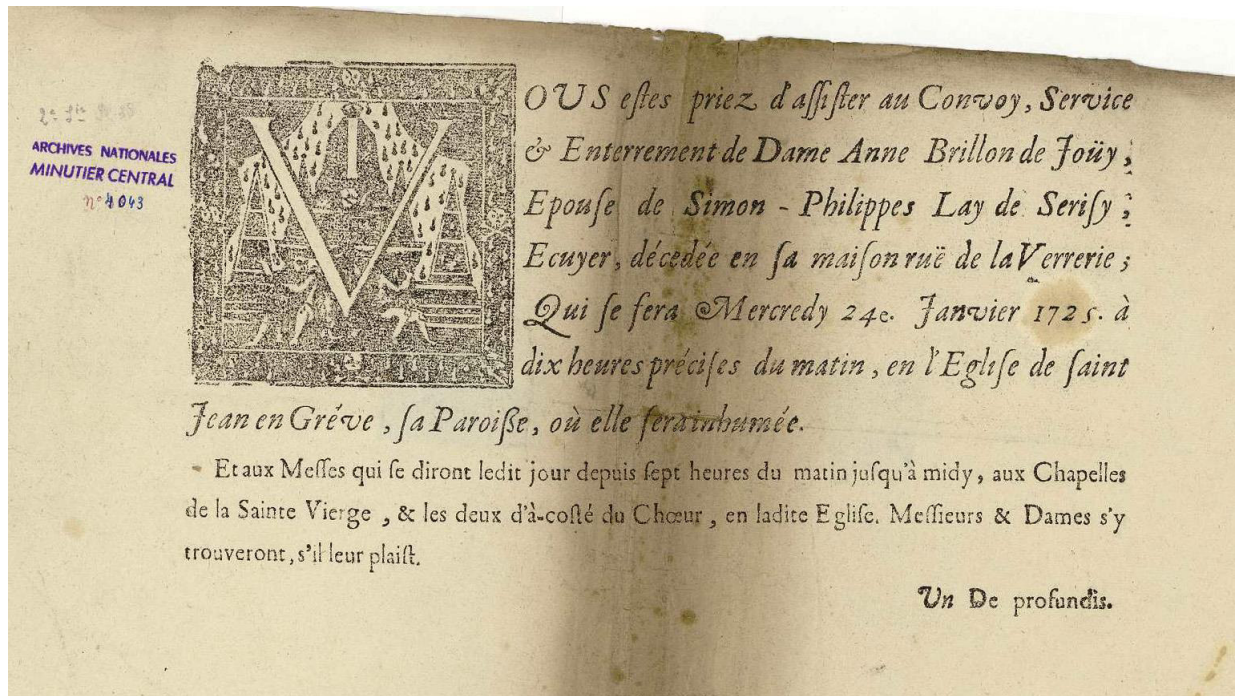 ARCHIVES NATIONALES
MINUTIER CENTRAL
n° 4043
VOUS eſtes priez d'aſſiſter au Convoy, Service
& Enterrement de Dame Anne Brillon de Joüy,
Epouſe de Simon - Philippes Lay de Seriſy,
Ecuyer, décedée en ſa maiſon ruë de la Verrerie;
Qui ſe fera Mercredy 24e. Janvier 1725. à
dix heures préciſes du matin, en l'Egliſe de ſaint
Jean en Gréve, ſa Paroiße, où elle ſera inhumée.
Et aux Meſſes qui ſe diront ledit jour depuis ſept heures du matin juſqu'à midy, aux Chapelles
de la Sainte Vierge, & les deux d'à-coſté du Chœur, en ladite Egliſe. Meſſieurs & Dames s'y
trouveront, s'il leur plaiſt.
Un De profundis.